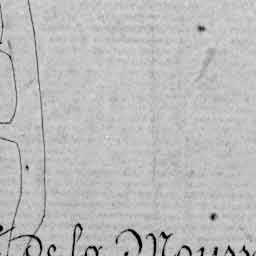 de la Mouss